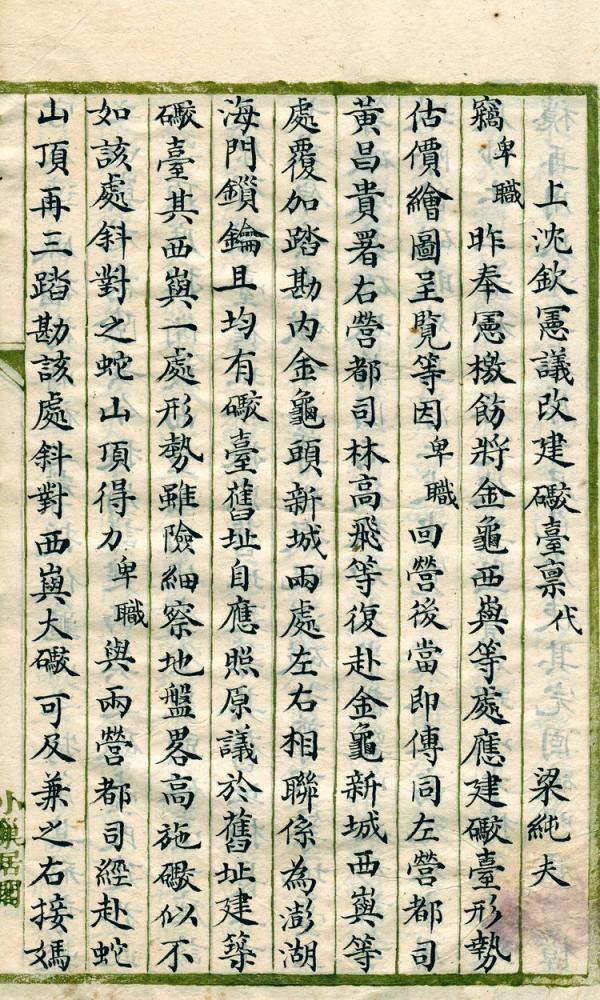 上沈欽憲議改建礮臺稟代 梁純夫
竊卑職昨奉憲檄飭將金龜西嶼等處應建礮臺形勢
估價繪圖呈覽等因卑職回營後當即傳同左營都司
黃昌貴署右營都司林高飛等復赴金龜新城西嶼等
處覆加踏勘內金龜頭新城兩處左右相聯係為澎湖
海門鎖鑰且均有礮臺舊址自應照原議於舊址建築
礮臺其西嶼一處形勢雖險細察地盤畧高施礮似不
如該處斜對之蛇山頂得力卑職與兩營都司經赴蛇
山頂再三踏勘該處斜對西嶼大礮可及兼之右接媽
小巢居閣